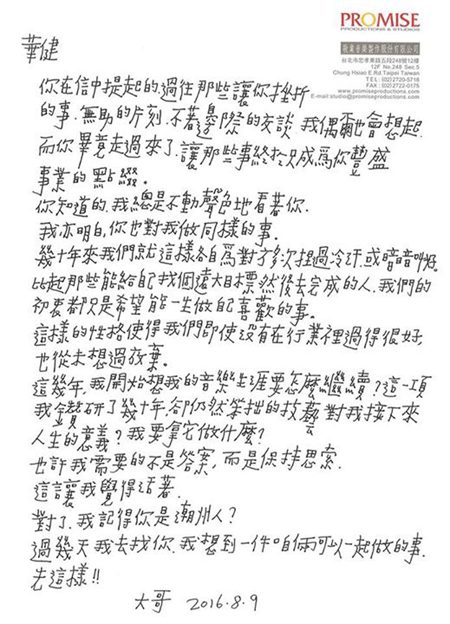 PROMISE
PRODUCTIONS & STUDIOS
敬業音樂製作股份有限公司
台北市忠孝東路五段248號12樓
12F No.248 Sec.5
Chung Hsiao E.Rd.Taipei Taiwan
TEL: (02) 2720-5716
FAX: (02) 2722-0175
www.promiseproductions.com
E-mail:studio@promiseproductions.com
華健
你在信中提起的過往那些讓你挫折
的事.無助的片刻.不著邊際的交談.我偶爾也會想起.
而你畢竟走過來了.讓那些事終於只成為你豐盛
事業的點綴.
你知道的.我總是不動聲色地看著你.
我亦明白.你也對我做同樣的事.
幾十年來我們就這樣各自為對方多次捏過冷汗.或暗暗叫好.
比起那些能給自己找個遠大目標然後去完成的人.我們的
初衷都只是希望能一生做自己喜歡的事.
這樣的性格使得我們即使沒有在行業裡過得很好.
也從未想過放棄.
這幾年.我開始想我的音樂生涯要怎麼繼續?這一項
我鑽研了幾十年.卻仍然笨拙的技藝對我接下來
人生的意義?我要拿它做什麼?
也許我需要的不是答案,而是保持思索.
這讓我覺得活著.
對了.我記得你是潮州人?
過幾天我去找你.我想到一件咱倆可以一起做的事.
先這樣!!
大哥 2016.8.9